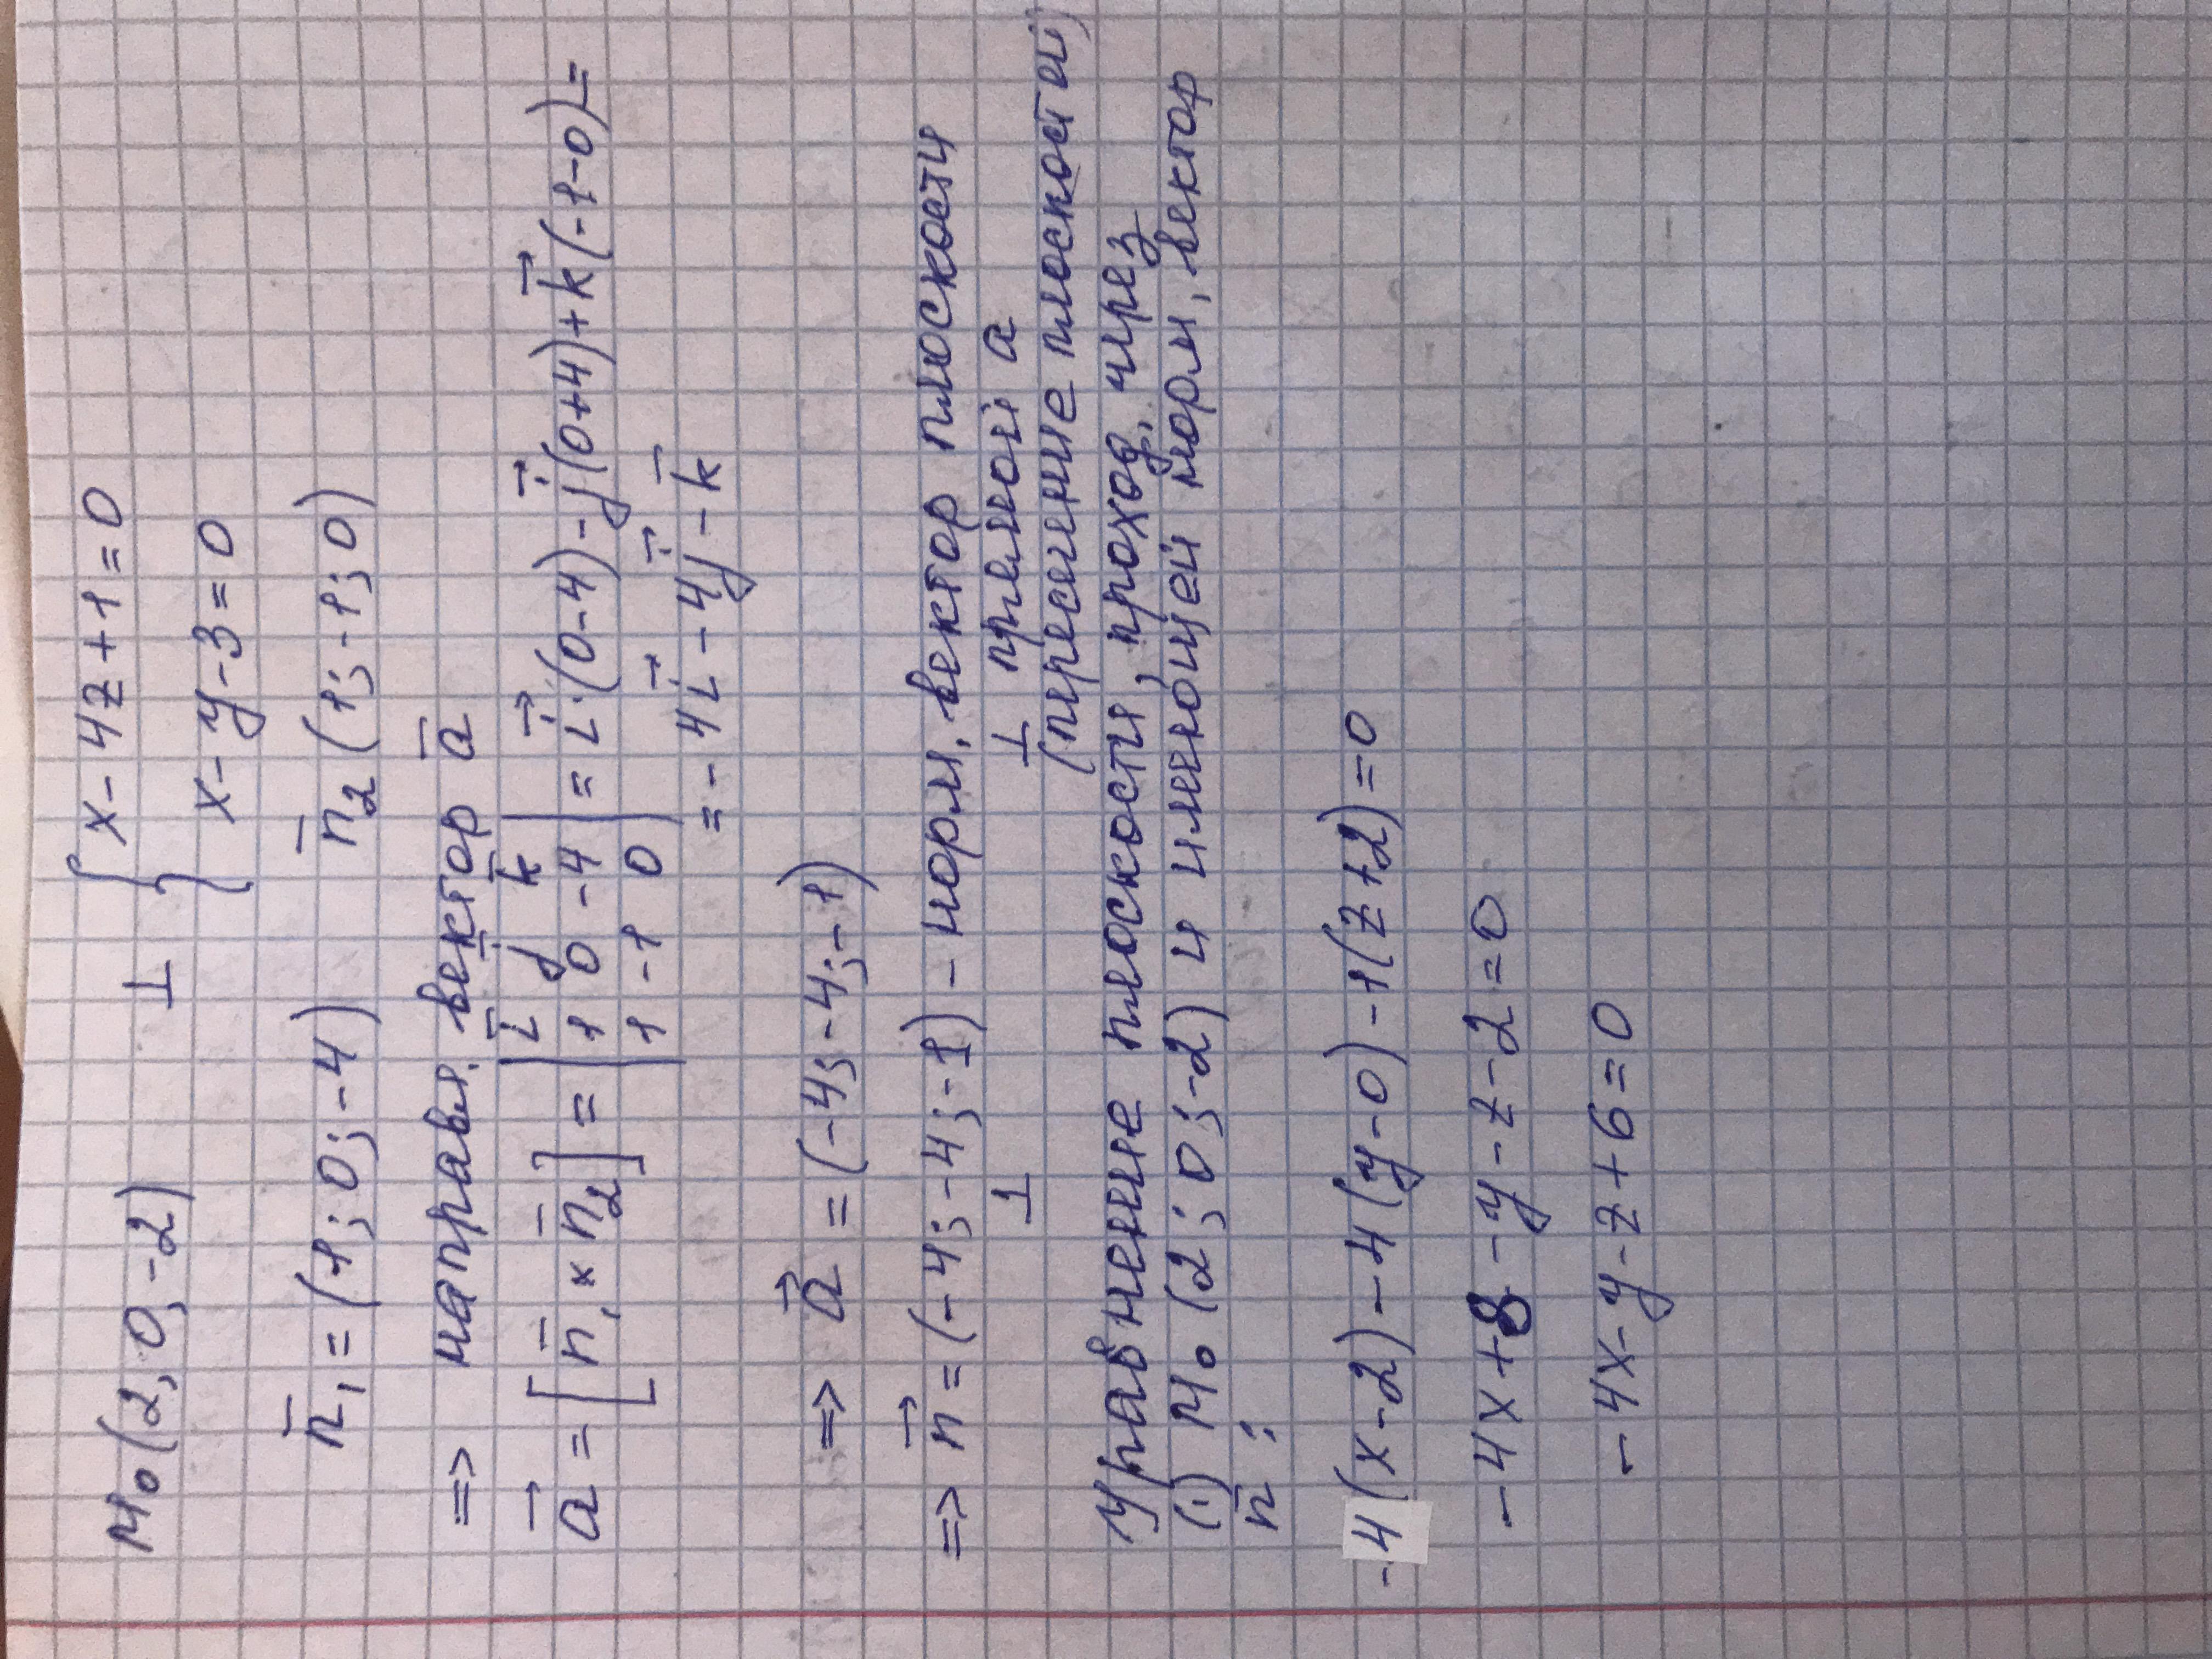 M₀(2, 0, -2) ⊥ { x - 4z + 1 = 0
x - y - 3 = 0
n̄₁ = (1; 0; -4) n̄₂ (1; -1; 0)
=> направл. вектор ā
a⃗ = [n̄₁ × n̄₂] = | ī j k̄ | 1 0 -4 | 1 -1 0 | = i⃗·(0-4) - j⃗(0+4) + k⃗(-1-0) =
= -4i⃗ - 4j⃗ - k̄
=> a⃗ = (-4; -4; -1)
=> n⃗ = (-4; -4; -1) - норм. вектор плоскости
⊥ ⊥ прямой a
(пересечение плоскостей)
Уравнение плоскости, проход. через
(·) M₀ (2; 0; -2) и имеющей норм. вектор
n̄:
-4(x-2) - 4(y-0) - 1(z+2) = 0
-4x + 8 - y - z - 2 = 0
-4x - y - z + 6 = 0